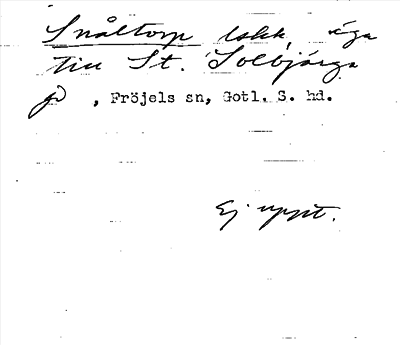 Snåltorp lskk, äga
till St. Solbjärga
på , Fröjels sn, Gotl. S. hd.
Ej uppt.